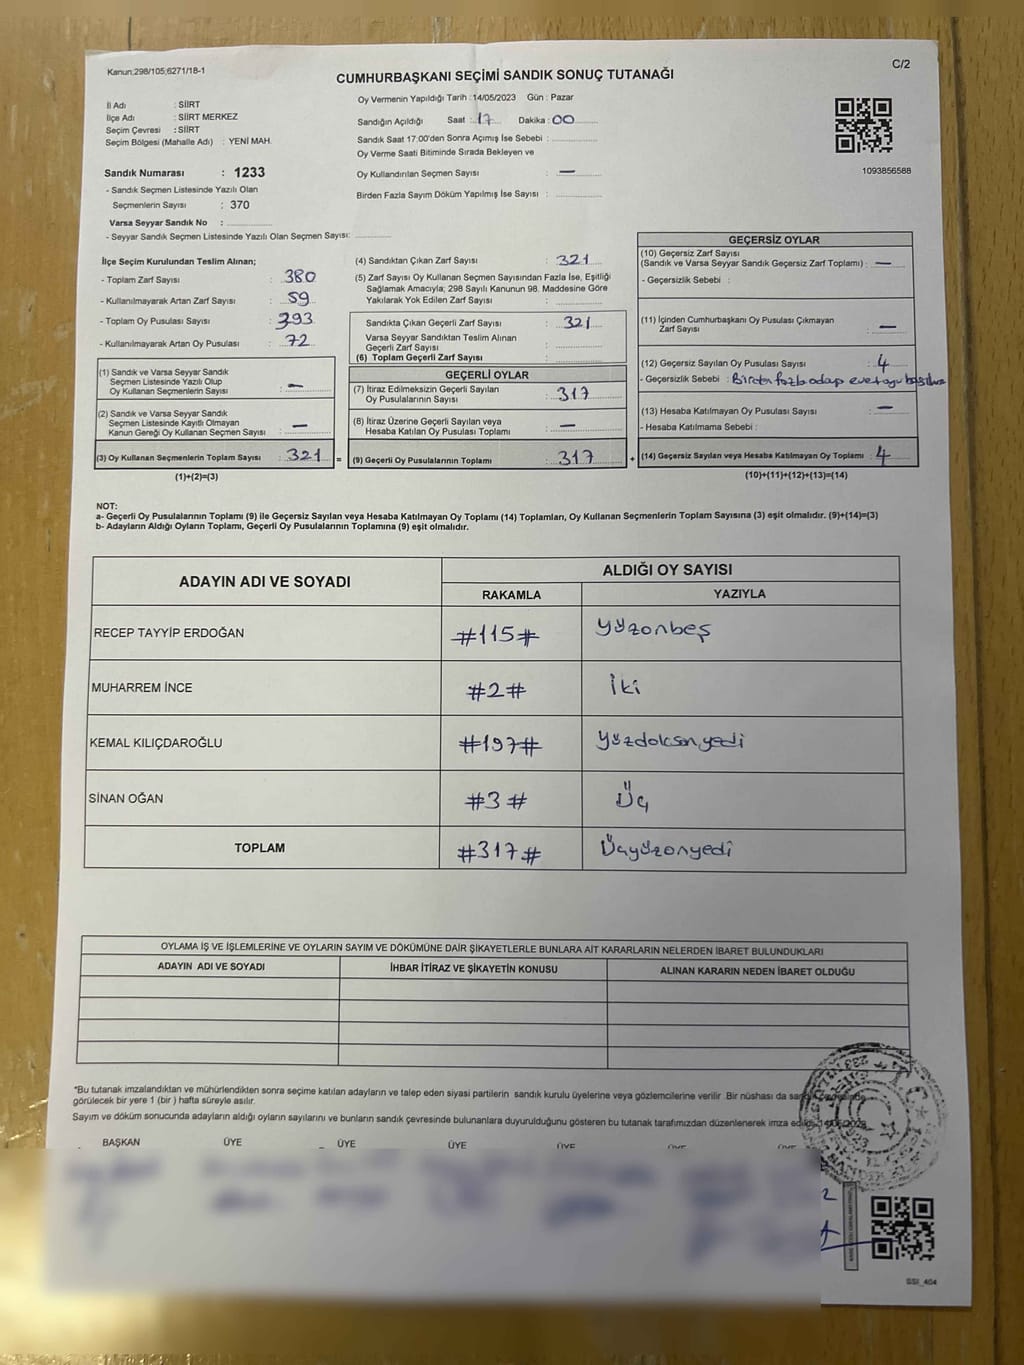 Kanun;298/105;6271/18-1
C/2
CUMHURBAŞKANI SEÇİMİ SANDIK SONUÇ TUTANAĞI
İl Adı : SİİRT
İlçe Adı : SİİRT MERKEZ
Seçim Çevresi : SİİRT
Seçim Bölgesi (Mahalle Adı) : YENİ MAH.
Oy Vermenin Yapıldığı Tarih : 14/05/2023 Gün : Pazar
Sandığın Açıldığı Saat : 17 Dakika : 00
Sandık Saat 17:00'den Sonra Açımış İse Sebebi :
Oy Verme Saati Bitiminde Sırada Bekleyen ve
Oy Kullandırılan Seçmen Sayısı : —
Birden Fazla Sayım Döküm Yapılmış İse Sayısı :
1093856588
Sandık Numarası : 1233
- Sandık Seçmen Listesinde Yazılı Olan
Seçmenlerin Sayısı : 370
Varsa Seyyar Sandık No :
- Seyyar Sandık Seçmen Listesinde Yazılı Olan Seçmen Sayısı:
İlçe Seçim Kurulundan Teslim Alınan;
- Toplam Zarf Sayısı : 380
- Kullanılmayarak Artan Zarf Sayısı : 59
- Toplam Oy Pusulası Sayısı : 393
- Kullanılmayarak Artan Oy Pusulası : 72
(1) Sandık ve Varsa Seyyar Sandık
Seçmen Listesinde Yazılı Olup
Oy Kullanan Seçmenlerin Sayısı : —
(2) Sandık ve Varsa Seyyar Sandık
Seçmen Listesinde Kayıtlı Olmayan
Kanun Gereği Oy Kullanan Seçmen Sayısı : —
(3) Oy Kullanan Seçmenlerin Toplam Sayısı : 321 =
(1)+(2)=(3)
(4) Sandıktan Çıkan Zarf Sayısı : 321
(5) Zarf Sayısı Oy Kullanan Seçmen Sayısından Fazla İse, Eşitliği
Sağlamak Amacıyla; 298 Sayılı Kanunun 98. Maddesine Göre
Yakılarak Yok Edilen Zarf Sayısı :
Sandıkta Çıkan Geçerli Zarf Sayısı : 321
Varsa Seyyar Sandıktan Teslim Alınan
Geçerli Zarf Sayısı :
(6) Toplam Geçerli Zarf Sayısı :
GEÇERLİ OYLAR
(7) İtiraz Edilmeksizin Geçerli Sayılan
Oy Pusulalarının Sayısı : 317
(8) İtiraz Üzerine Geçerli Sayılan veya
Hesaba Katılan Oy Pusulası Toplamı : —
(9) Geçerli Oy Pusulalarının Toplamı : 317 +
GEÇERSİZ OYLAR
(10) Geçersiz Zarf Sayısı
(Sandık ve Varsa Seyyar Sandık Geçersiz Zarf Toplamı) : —
- Geçersizlik Sebebi :
(11) İçinden Cumhurbaşkanı Oy Pusulası Çıkmayan
Zarf Sayısı : —
(12) Geçersiz Sayılan Oy Pusulası Sayısı : 4
- Geçersizlik Sebebi : Birden fazla adap evet
(13) Hesaba Katılmayan Oy Pusulası Sayısı : —
- Hesaba Katılmama Sebebi :
(14) Geçersiz Sayılan veya Hesaba Katılmayan Oy Toplamı : 4
(10)+(11)+(12)+(13)=(14)
NOT:
a- Geçerli Oy Pusulalarının Toplamı (9) ile Geçersiz Sayılan veya Hesaba Katılmayan Oy Toplamı (14) Toplamları, Oy Kullanan Seçmenlerin Toplam Sayısına (3) eşit olmalıdır. (9)+(14)=(3)
b- Adayların Aldığı Oyların Toplamı, Geçerli Oy Pusulalarının Toplamına (9) eşit olmalıdır.
ADAYIN ADI VE SOYADI
ALDIĞI OY SAYISI
RAKAMLA YAZIYLA
RECEP TAYYİP ERDOĞAN #115# yüzonbeş
MUHARREM İNCE #2# İki
KEMAL KILIÇDAROĞLU #197# yüzdoksanyedi
SİNAN OĞAN #3# Üç
TOPLAM #317# Üçyüzonyedi
OYLAMA İŞ VE İŞLEMLERİNE VE OYLARIN SAYIM VE DÖKÜMÜNE DAİR ŞİKAYETLERLE BUNLARA AİT KARARLARIN NELERDEN İBARET BULUNDUKLARI
ADAYIN ADI VE SOYADI İHBAR İTİRAZ VE ŞİKAYETİN KONUSU ALINAN KARARIN NEDEN İBARET OLDUĞU
*Bu tutanak imzalandıktan ve mühürlendikten sonra seçime katılan adayların ve talep eden siyasi partilerin sandık kurulu üyelerine veya gözlemcilerine verilir. Bir nüshası da sandık çevresinde
görülecek bir yere 1 (bir ) hafta süreyle asılır.
Sayım ve döküm sonucunda adayların aldığı oyların sayılarını ve bunların sandık çevresinde bulunanlara duyurulduğunu gösteren bu tutanak tarafımızdan düzenlenerek imza edildi. 14/05/2023
BAŞKAN ÜYE ÜYE ÜYE ÜYE ÜYE ÜYE
SSI_404